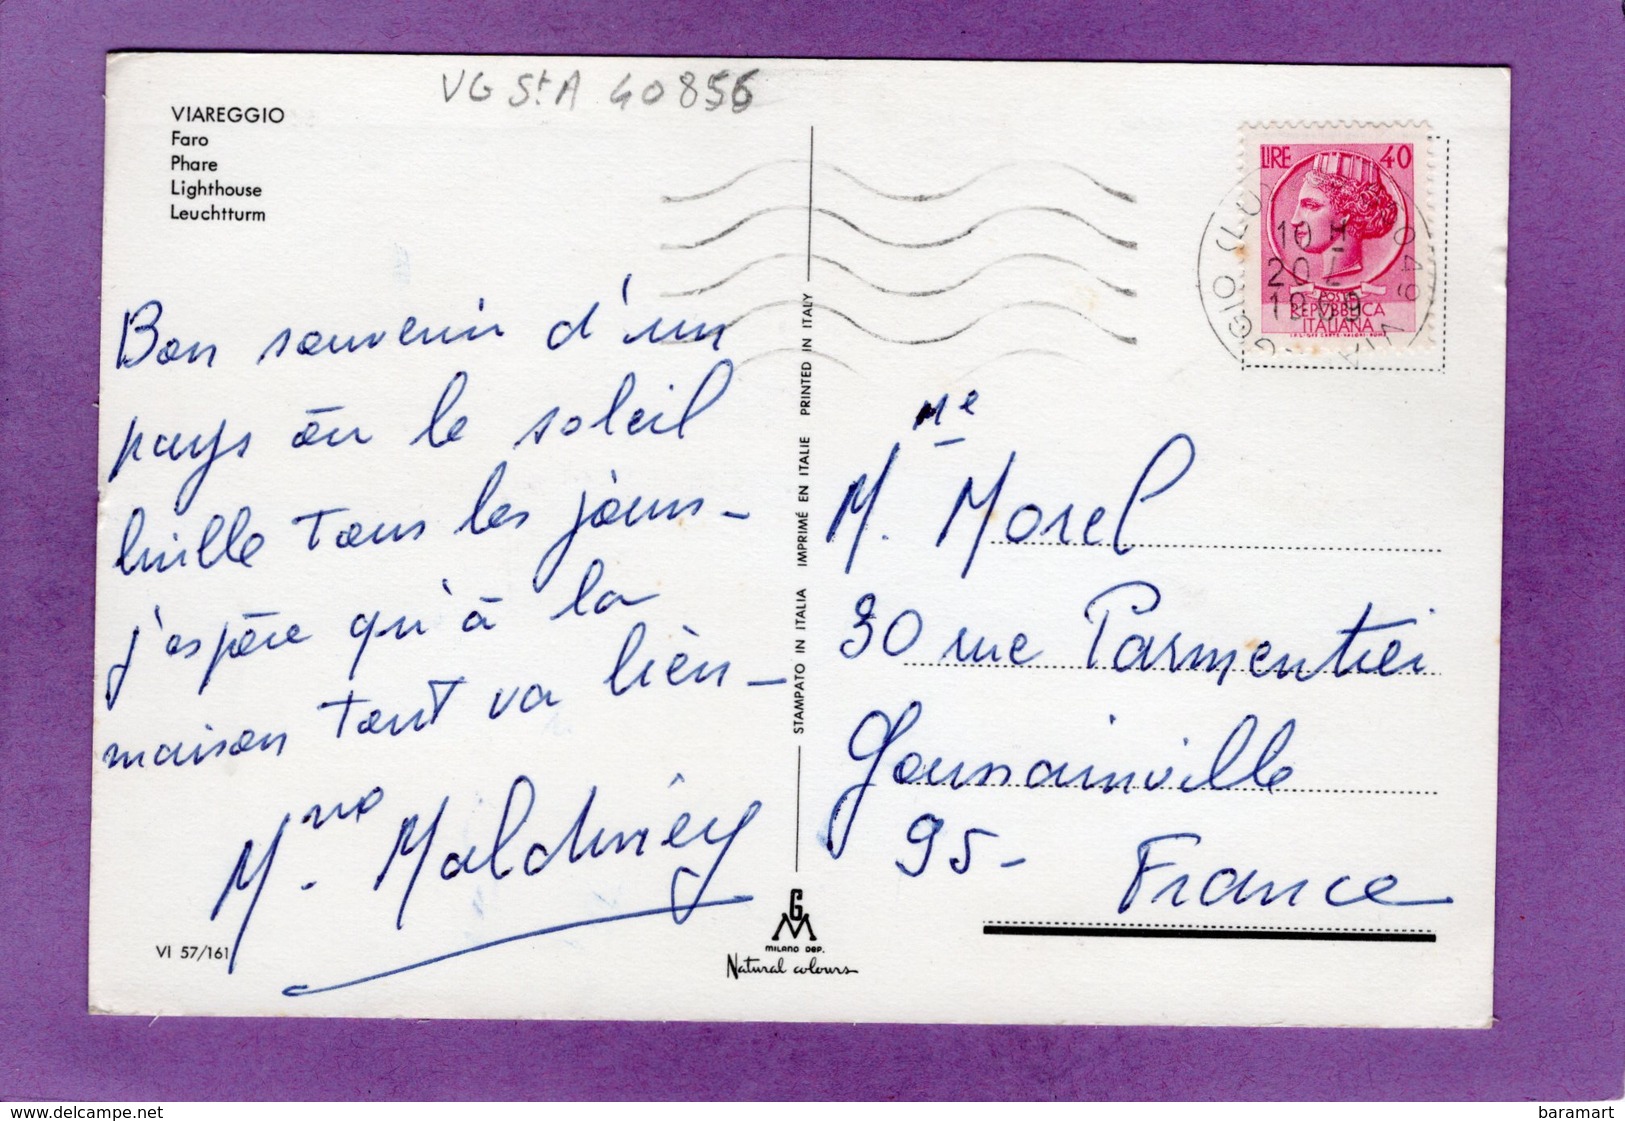 VG St A 40856
VIAREGGIO
Faro
Phare
Lighthouse
Leuchtturm
Bon souvenir d'un
pays où le soleil
brille tous les jours -
j'espère qu'à la
maison tout va bien -
VI 57/161
STAMPATO IN ITALIA IMPRIMÉ EN ITALIE PRINTED IN ITALY
GM
MILANO DEP.
Natural colours
LIRE 40
POSTE
REPVBBLICA
ITALIANA
10 H
20
1969
Me
M. Morel
30 rue Parmentier
Goussainville
95 -
France
www.delcampe.net
baramart